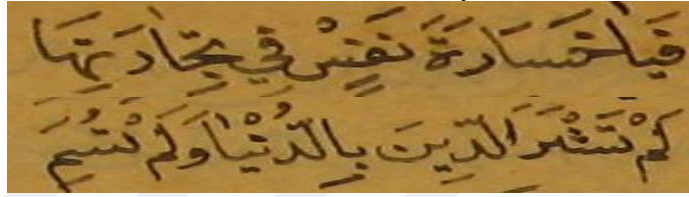 فَيَا خَسَارَةَ نَفْسٍ فِي تِجَارَتِهَا
لَمْ تَشْتَرِ الدِّينَ بِالدُّنْيَا وَلَمْ تَسُمِ